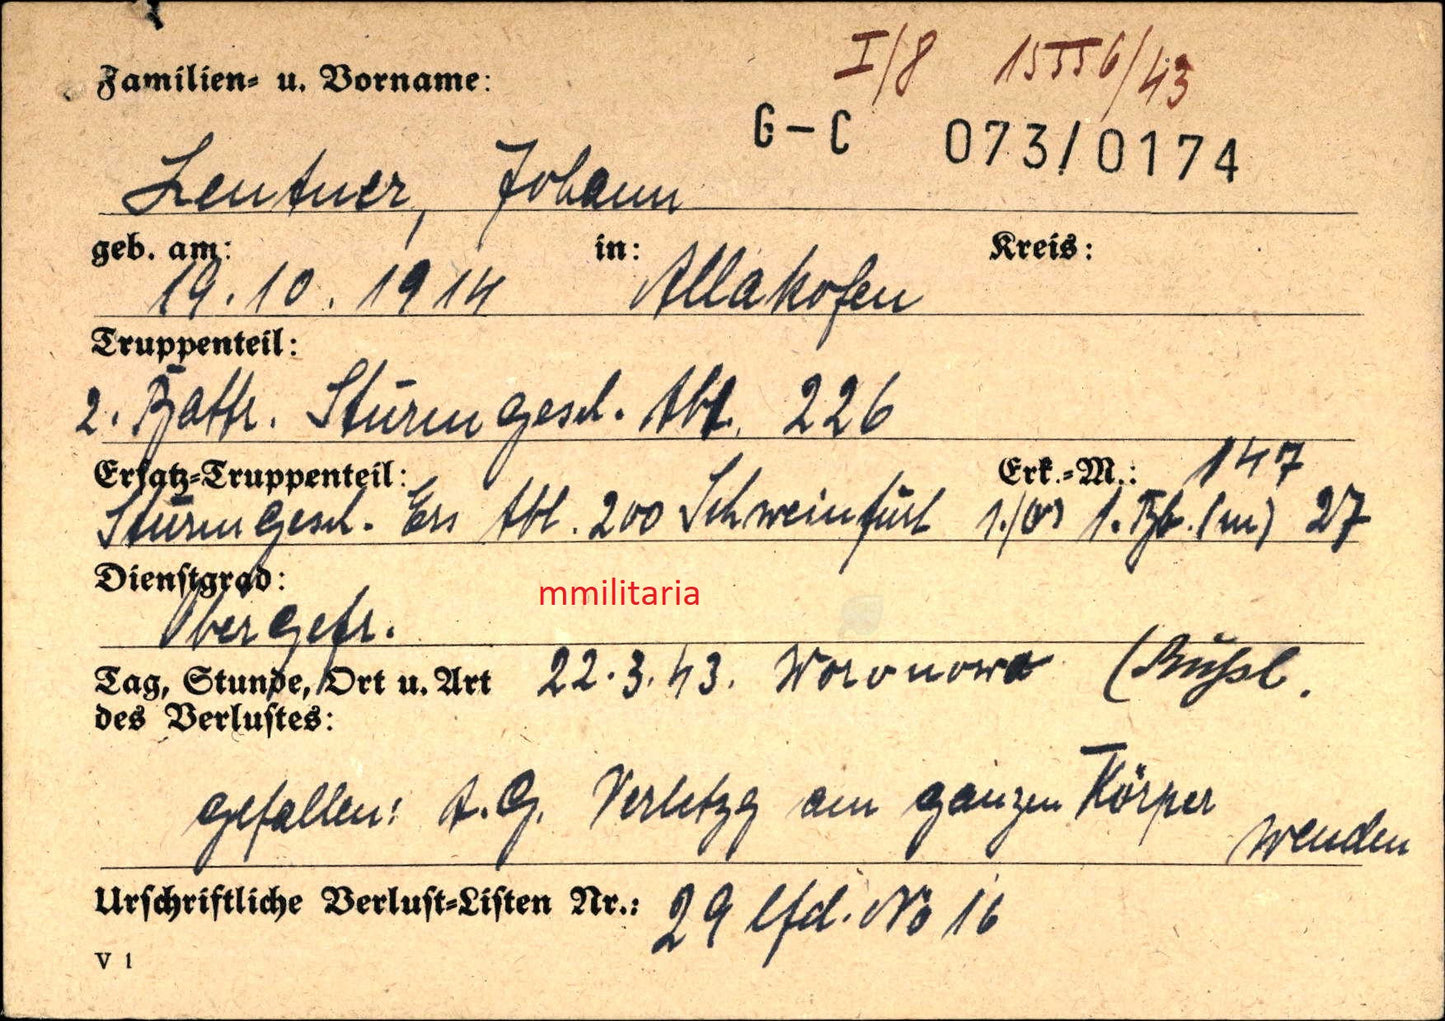 I/8 15556/43
Familien- u. Vorname:
G-C 073/0174
Lentner, Johann
geb. am: in: Kreis:
19.10.1914 Allakofen
Truppenteil:
2. Battr. Sturmgesch. Abt. 226
Ersatz-Truppenteil: Erk.-M.: 147
Sturmgesch. Ers Abt. 200 Schweinfurt 1. Bb. (m) 27
Dienstgrad:
Obergefr.
mmilitaria
Tag, Stunde, Ort u. Art 22.3.43. Woronowo (Rußl.
des Verlustes:
gefallen: A.G. Verletzg am ganzen Körper
wenden
Urschriftliche Verlust-Listen Nr.: 29 lfd. No 16
V 1